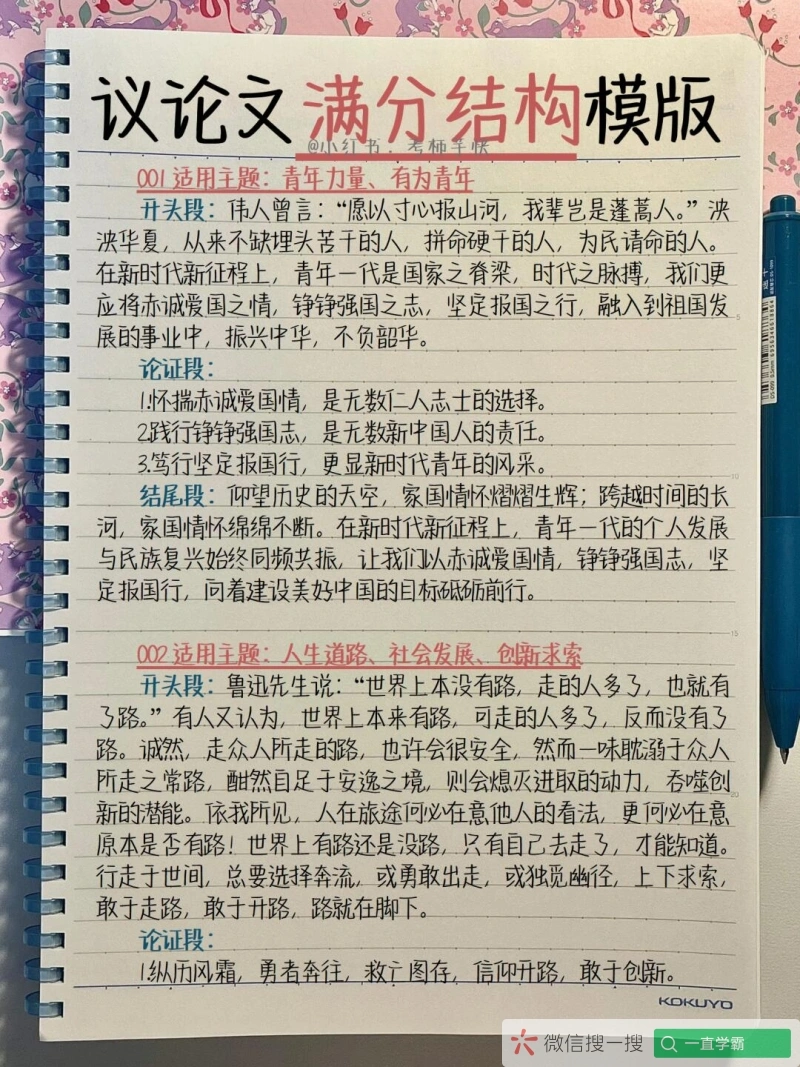 议论文满分结构模版
@小红书：考师羊快
001 适用主题：青年力量、有为青年
开头段：伟人曾言：“愿以寸心报山河，我辈岂是蓬蒿人。”泱
泱华夏，从来不缺埋头苦干的人，拼命硬干的人，为民请命的人。
在新时代新征程上，青年一代是国家之脊梁，时代之脉搏，我们更
应将赤诚爱国之情，铮铮强国之志，坚定报国之行，融入到祖国发
展的事业中，振兴中华，不负韶华。
论证段：
1.怀揣赤诚爱国情，是无数仁人志士的选择。
2.践行铮铮强国志，是无数新中国人的责任。
3.笃行坚定报国行，更显新时代青年的风采。
结尾段：仰望历史的天空，家国情怀熠熠生辉；跨越时间的长
河，家国情怀绵绵不断。在新时代新征程上，青年一代的个人发展
与民族复兴始终同频共振，让我们以赤诚爱国情，铮铮强国志，坚
定报国行，向着建设美好中国的目标砥砺前行。
002 适用主题：人生道路、社会发展、创新求索
开头段：鲁迅先生说：“世界上本没有路，走的人多了，也就有
了路。”有人又认为，世界上本来有路，可走的人多了，反而没有了
路。诚然，走众人所走的路，也许会很安全，然而一味耽溺于众人
所走之常路，酣然自足于安逸之境，则会熄灭进取的动力，吞噬创
新的潜能。依我所见，人在旅途何必在意他人的看法，更何必在意
原本是否有路！世界上有路还是没路，只有自己去走了，才能知道。
行走于世间，总要选择奔流，或勇敢出走，或独觅幽径，上下求索，
敢于走路，敢于开路，路就在脚下。
论证段：
1.纵历风霜，勇者奔往，救亡图存，信仰开路，敢于创新。
5
10
15
20
KOKUYO
微信搜一搜 一直学霸